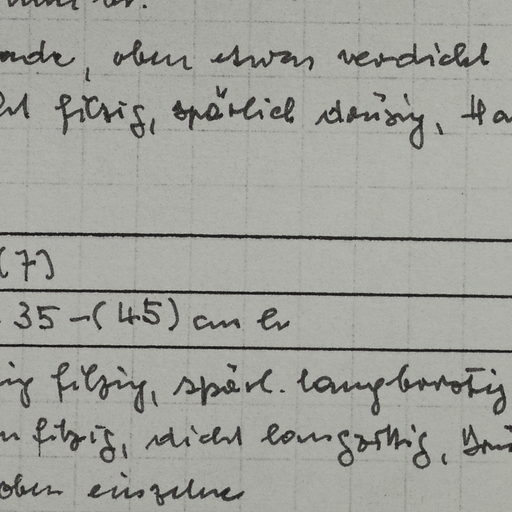 oben etwas verdickt
filzig, spärlich drüsig,
(7)
35-(45) cm hr
filzig, spärl. langborstig
filzig, dicht langzottig,
oben einzelne